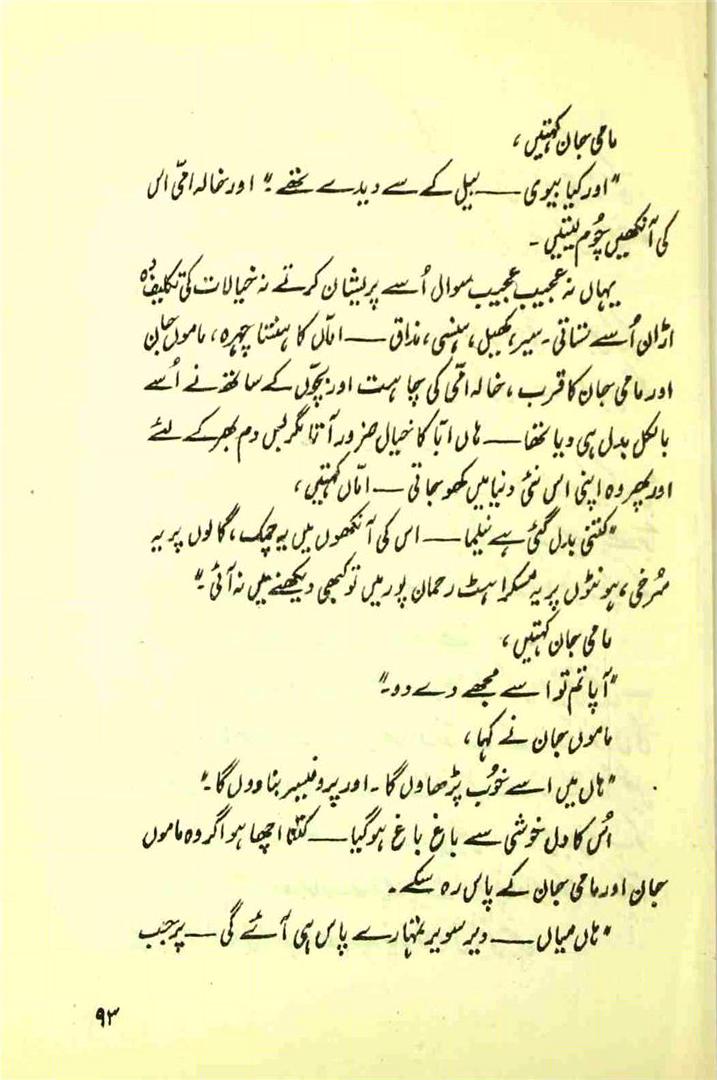 مامی جان کہتیں،
"اور کیا بیوی — بیل کے سے دیدے تھے۔" اور خالہ امّی اس
کی آنکھیں چُوم لیتیں۔
یہاں نہ عجیب عجیب سوال اُسے پریشان کرتے نہ خیالات کی تکلیف دہ
اڑان اُسے ستاتی۔ سیر، کھیل، ہنسی، مذاق — امّاں کا ہنستا چہرہ، ماموں جان
اور مامی جان کا قرب، خالہ امّی کی چاہت اور بچّوں کے ساتھ نے اُسے
بالکل بدل ہی دیا تھا — ہاں ابّا کا خیال ضرور آتا مگر بس دم بھر کے لئے
اور پھر وہ اپنی اس نئی دنیا میں کھو جاتی — امّاں کہتیں،
"کتنی بدل گئی ہے نیلما — اس کی آنکھوں میں یہ چمک، گالوں پر یہ
سُرخی، ہونٹوں پر یہ مسکراہٹ رحمان پور میں تو کبھی دیکھنے میں نہ آئی۔"
مامی جان کہتیں،
"آپا تم تو اسے مجھے دے دو۔"
ماموں جان نے کہا،
"ہاں میں اسے خوُب پڑھاوں گا۔ اور پروفیسر بنا دوں گا۔"
اُس کا دل خوشی سے باغ باغ ہو گیا — کتنا اچھا ہو اگر وہ ماموں
جان اور مامی جان کے پاس رہ سکے۔
"ہاں میاں — دیر سویر تمہارے پاس ہی آئے گی — پر جب
۹۳